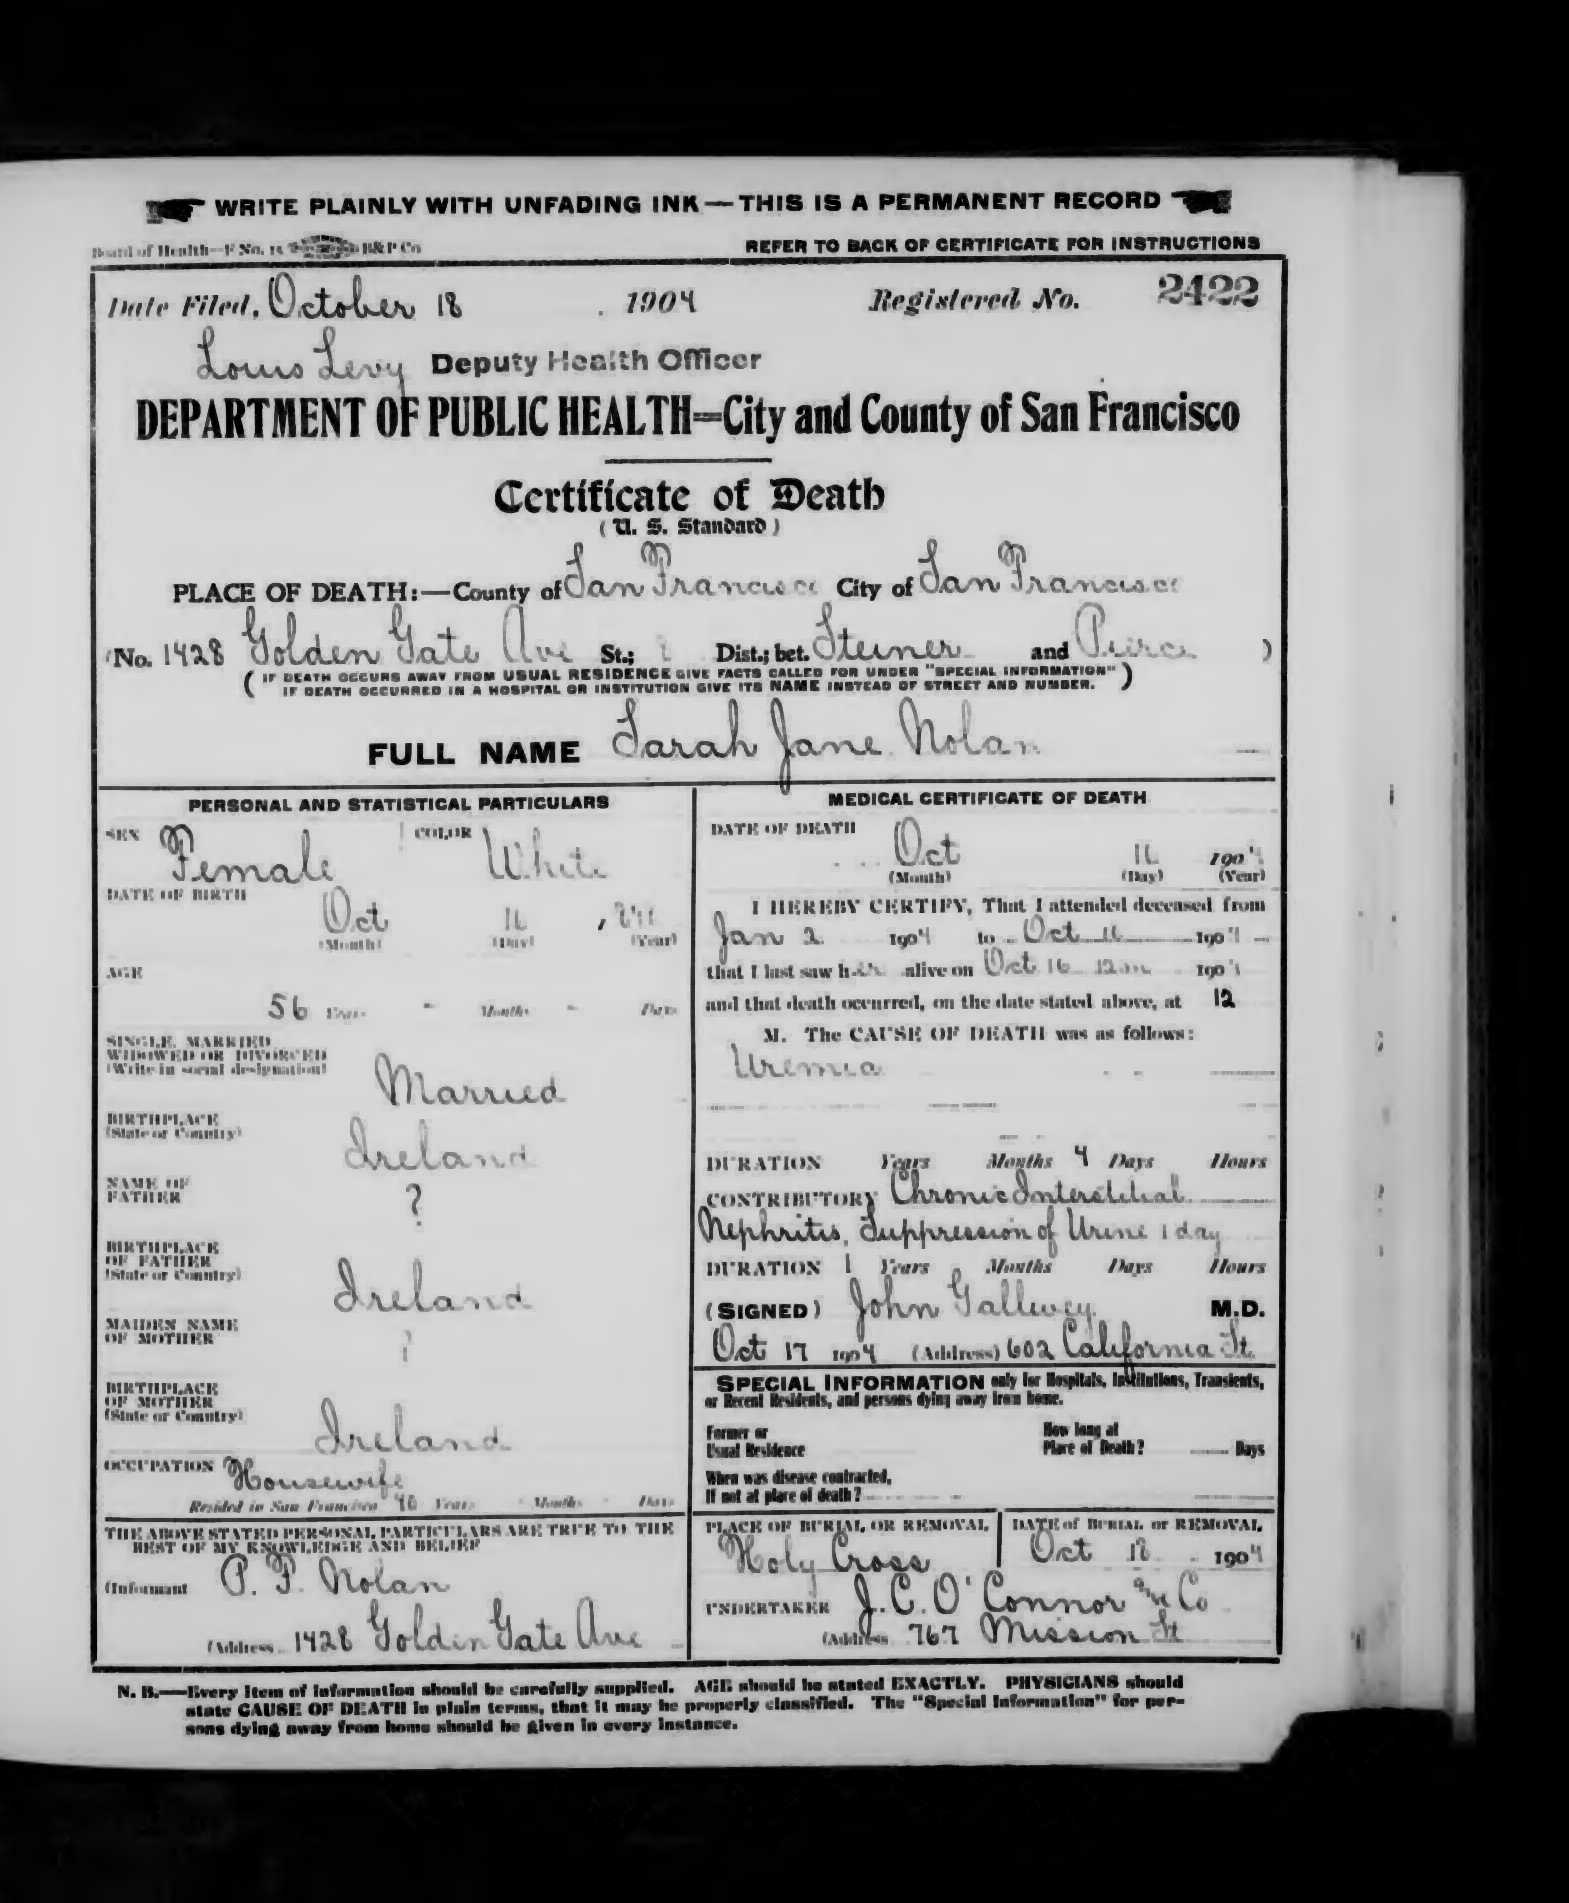 WRITE PLAINLY WITH UNFADING INK — THIS IS A PERMANENT RECORD
Board of Health—F No. 15 B&P Co
REFER TO BACK OF CERTIFICATE FOR INSTRUCTIONS
Date Filed, October 18 1904 Registered No. 2422
Louis Levy Deputy Health Officer
DEPARTMENT OF PUBLIC HEALTH=City and County of San Francisco
Certificate of Death
(U. S. Standard)
PLACE OF DEATH:—County of San Francisco City of San Francisco
(No. 1428 Golden Gate Ave St.; 8 Dist.; bet. Steiner and Peirce )
( IF DEATH OCCURS AWAY FROM USUAL RESIDENCE GIVE FACTS CALLED FOR UNDER "SPECIAL INFORMATION" )
( IF DEATH OCCURRED IN A HOSPITAL OR INSTITUTION GIVE ITS NAME INSTEAD OF STREET AND NUMBER. )
FULL NAME Sarah Jane Nolan
PERSONAL AND STATISTICAL PARTICULARS
SEX Female COLOR White
DATE OF BIRTH
Oct 16 ,
(Month) (Day) (Year)
AGE
56 Years - Months - Days
SINGLE, MARRIED
WIDOWED OR DIVORCED
(Write in social designation)
Married
BIRTHPLACE
(State or Country)
Ireland
NAME OF
FATHER
?
BIRTHPLACE
OF FATHER
(State or Country)
Ireland
MAIDEN NAME
OF MOTHER
?
BIRTHPLACE
OF MOTHER
(State or Country)
Ireland
OCCUPATION Housewife
Resided in San Francisco 40 Years - Months - Days
THE ABOVE STATED PERSONAL PARTICULARS ARE TRUE TO THE
BEST OF MY KNOWLEDGE AND BELIEF
(Informant P. F. Nolan
(Address 1428 Golden Gate Ave
MEDICAL CERTIFICATE OF DEATH
DATE OF DEATH
Oct 16 1904
(Month) (Day) (Year)
I HEREBY CERTIFY, That I attended deceased from
Jan 2 1904 to Oct 16 1904
that I last saw her alive on Oct 16 12m 1904
and that death occurred, on the date stated above, at 12
M. The CAUSE OF DEATH was as follows:
Uremia
DURATION Years Months 4 Days Hours
CONTRIBUTORY Chronic Interstitial
Nephritis, Suppression of Urine 1 day
DURATION 1 Years Months Days Hours
(SIGNED) John Gallwey M.D.
Oct 17 1904 (Address) 602 California St.
SPECIAL INFORMATION only for Hospitals, Institutions, Transients,
or Recent Residents, and persons dying away from home.
Former or
Usual Residence
How long at
Place of Death? Days
When was disease contracted,
If not at place of death?
PLACE OF BURIAL OR REMOVAL
Holy Cross
DATE of BURIAL or REMOVAL
Oct 18 1904
UNDERTAKER J. C. O'Connor and Co
(Address 767 Mission St
N. B.—Every item of information should be carefully supplied. AGE should be stated EXACTLY. PHYSICIANS should
state CAUSE OF DEATH in plain terms, that it may be properly classified. The "Special Information" for per-
sons dying away from home should be given in every instance.